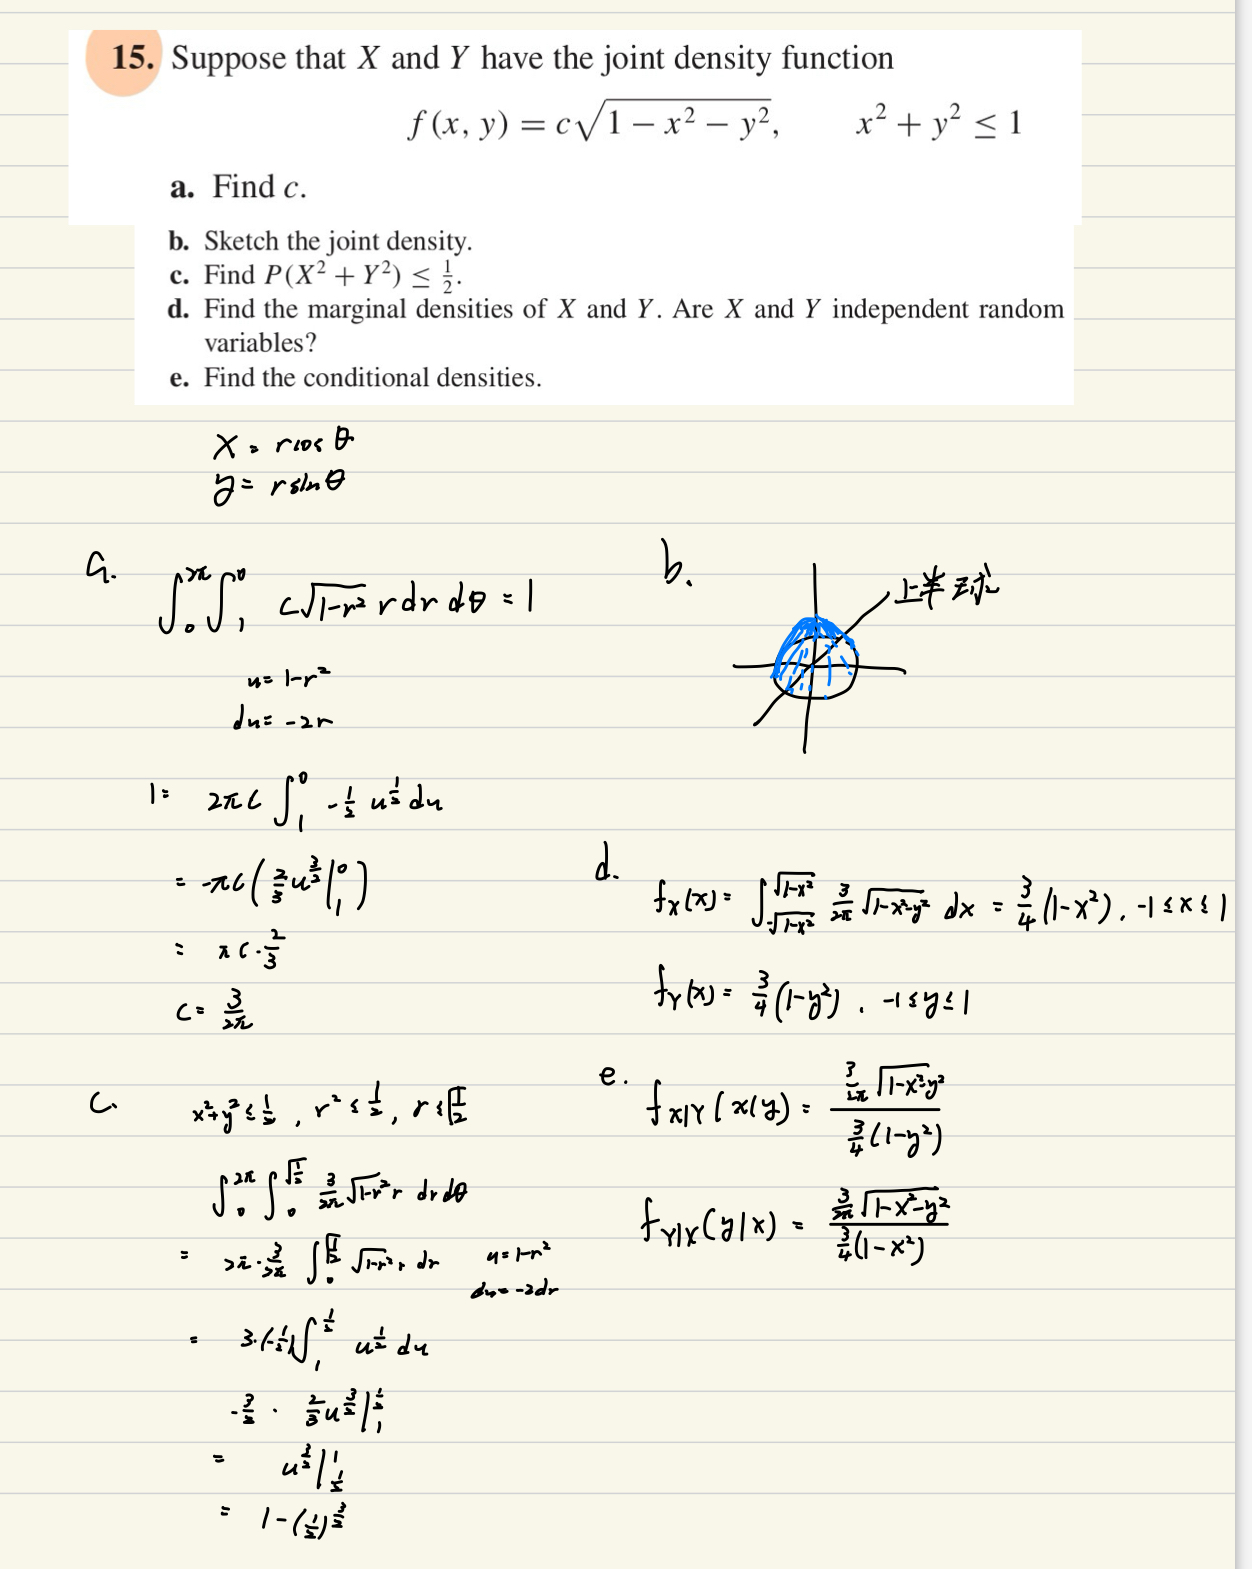 15. Suppose that X and Y have the joint density function
f(x, y) = c√(1 − x² − y²), x² + y² ≤ 1
a. Find c.
b. Sketch the joint density.
c. Find P(X² + Y²) ≤ 1/2.
d. Find the marginal densities of X and Y. Are X and Y independent random
variables?
e. Find the conditional densities.
x = rcosθ
y = rsinθ
a.
∫₀^2π ∫₁^0 c√(1-r²) r dr dθ = 1
u = 1-r²
du = -2r
1 = 2πc ∫₁^0 -1/2 u^(1/2) du
= -πc (2/3 u^(3/2) |₁^0)
= πc · 2/3
c = 3/2π
b.
上半球
c.
x²+y² ≤ 1/2, r² ≤ 1/2, r ≤ √(1/2)
∫₀^2π ∫₀^√(1/2) 3/2π √(1-r²) r dr dθ
= 2π · 3/2π ∫₀^√(1/2) √(1-r²) r dr u = 1-r²
du = -2dr
= 3·(-1/2) ∫₁^(1/2) u^(1/2) du
-3/2 · 2/3 u^(3/2) |₁^(1/2)
= u^(3/2) |_(1/2)^1
= 1-(1/2)^(3/2)
d.
f_X(x) = ∫_(-√(1-x²))^(√(1-x²)) 3/2π √(1-x²-y²) dx = 3/4 (1-x²), -1 ≤ x ≤ 1
f_Y(x) = 3/4 (1-y²), -1 ≤ y ≤ 1
e.
f_X|Y (x|y) = (3/2π √(1-x²-y²)) / (3/4 (1-y²))
f_Y|X (y|x) = (3/2π √(1-x²-y²)) / (3/4 (1-x²))